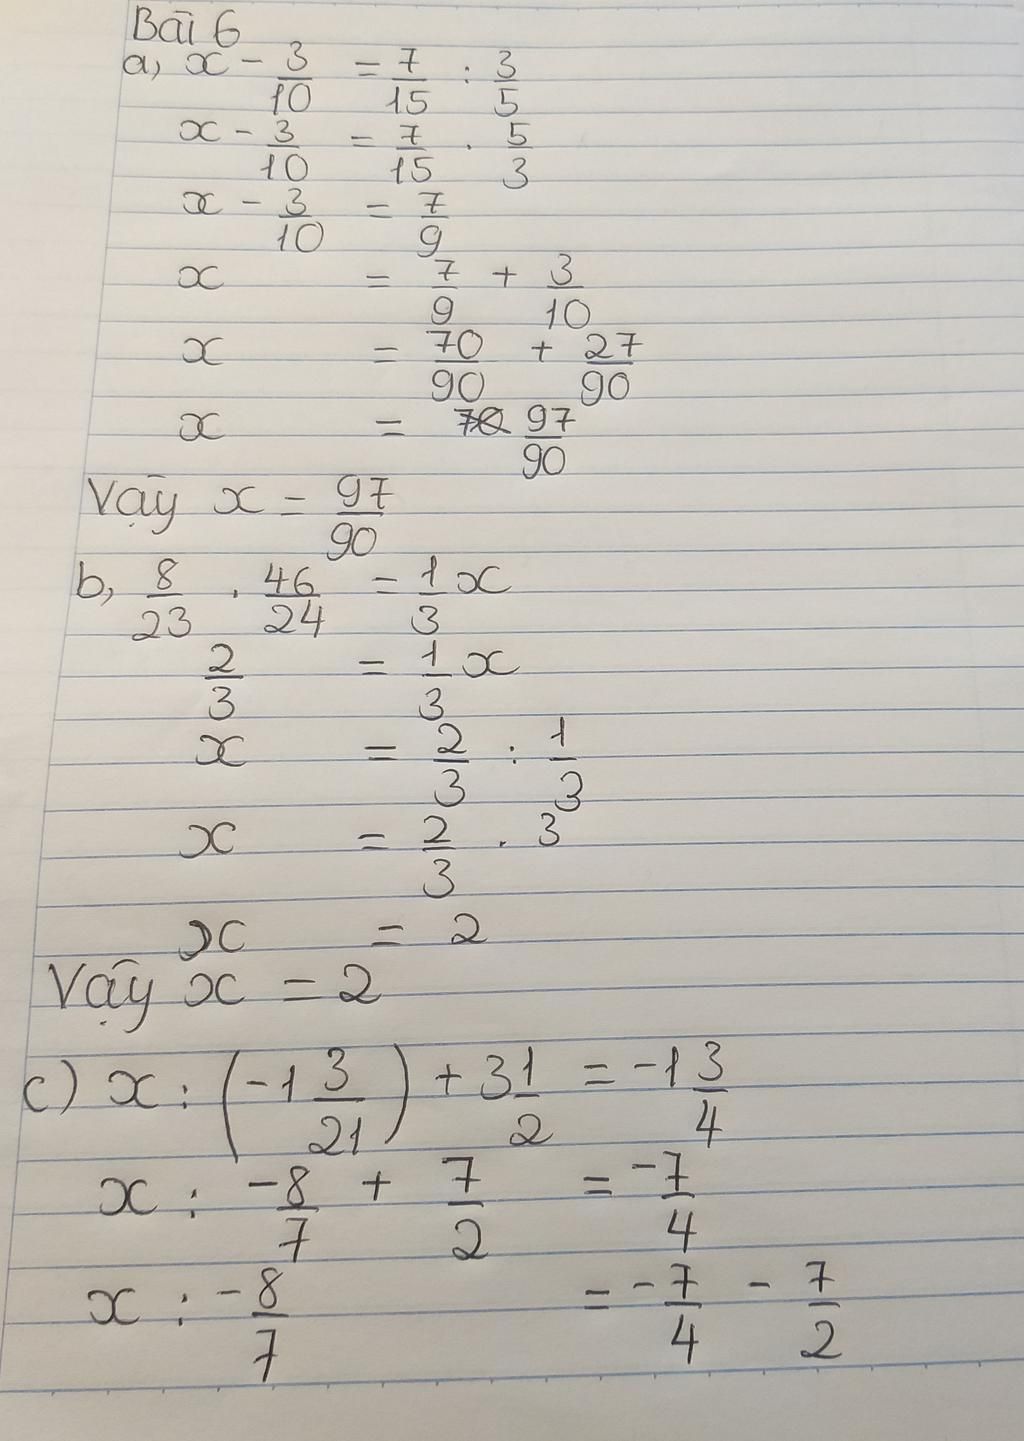 Bài 6
a, x - 3/10 = 7/15 : 3/5
x - 3/10 = 7/15 . 5/3
x - 3/10 = 7/9
x = 7/9 + 3/10
x = 70/90 + 27/90
x = 97/90
Vậy x = 97/90
b, 8/23 . 46/24 = 1/3 x
2/3 = 1/3 x
x = 2/3 : 1/3
x = 2/3 . 3
x = 2
Vậy x = 2
c) x : (-1 3/21) + 3 1/2 = -1 3/4
x : -8/7 + 7/2 = -7/4
x : -8/7 = -7/4 - 7/2